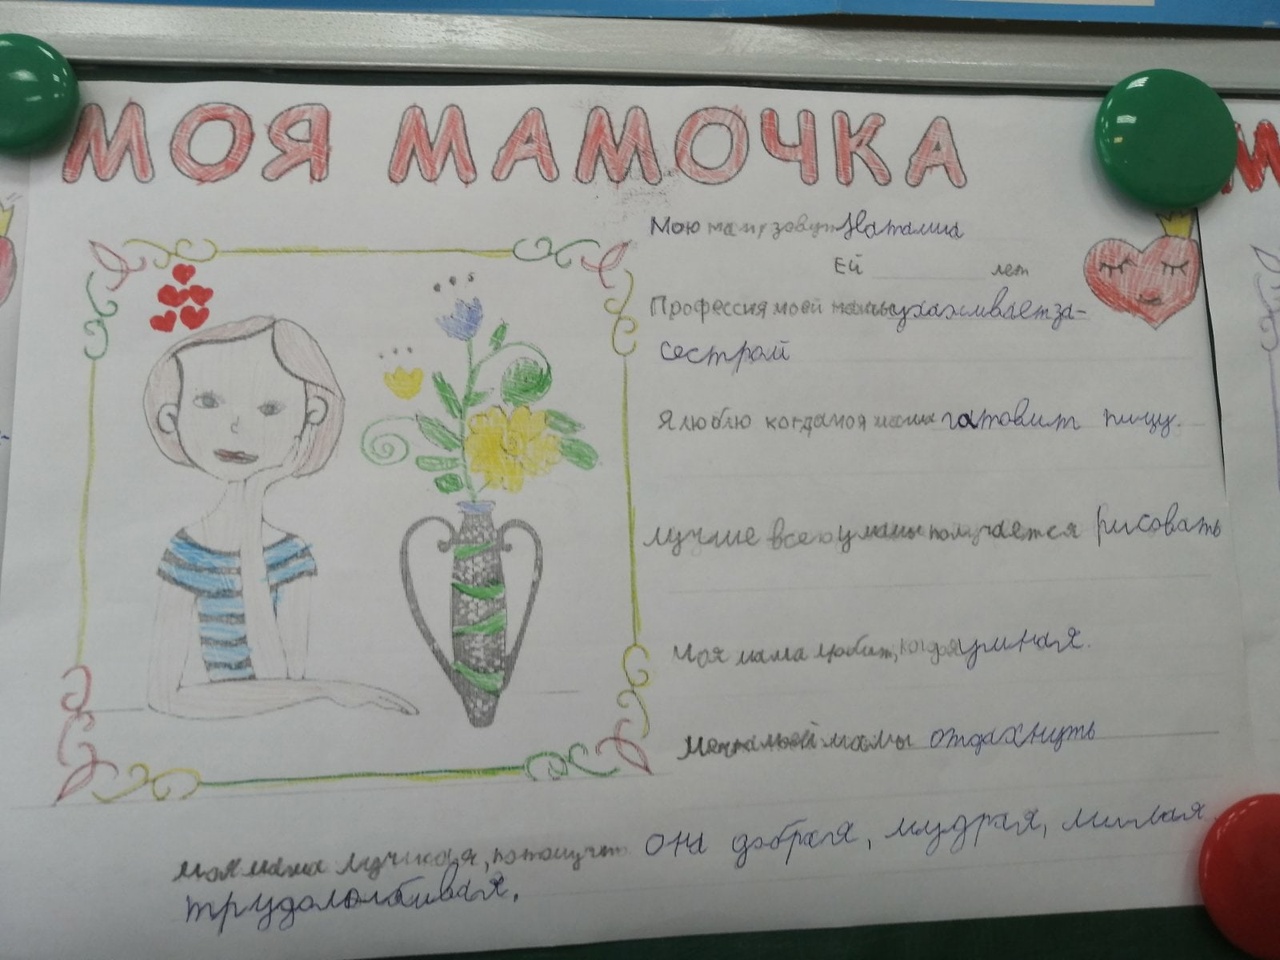 МОЯ МАМОЧКА
Мою маму зовут Наталиа
Ей лет
Профессия моей мамы ухаживает за-
сестрой
Я люблю когда моя мама гатовит пищу.
лучше всего у мамы получается рисовать
Моя мама любит, когда я умная.
Мечта моей мамы отдахнуть
моя мама лучшая, потому что она добрая, мудрая, милая
трудололбивая.